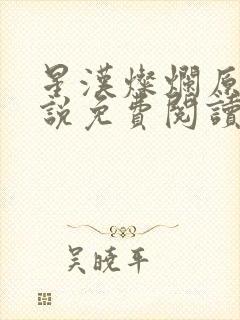 星漢燦爛原
說免費閱讀
吳曉平